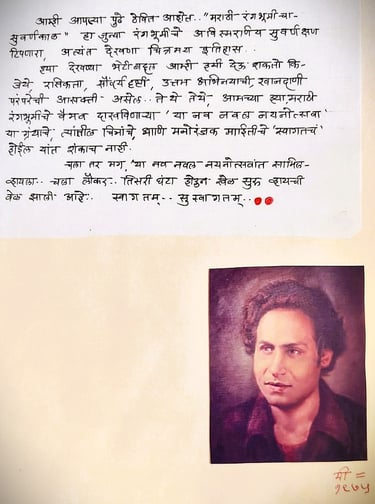 आम्ही आपल्या पुढे ठेवित आहोत.. "मराठी रंगभूमी-चा-
सुवर्णकाळ" हा जुन्या रंगभूमीचे अविस्मरणीय सुवर्णक्षण
टिपणारा, अत्यंत देखणा चित्रमय इतिहास..
ह्या देखण्या भेटीबद्दल आम्ही हमी देऊ शकतो कि-
जेथे रसिकता, सौंदर्य दृष्टी, उत्तम अभिनयाची, खानदानी
परंपरेची आसक्ती असेल.. ते थे तेथे, आमच्या ह्या, मराठी
रंगभूमीचे वैभव दाखविणाऱ्या 'या नव नवल नयनोत्सवा'
या ग्रंथाचे, त्यांतील चित्रांचे, आणि मनोरंजक माहितीचे 'स्वागतचं'
होईल यांत शंकाच नाही.
चला तर मग, 'या नव नवल नयनोत्सवांत सामिल-
व्हायला.. चला लौकर.. तिसरी घंटा होऊन खेळ सुरू व्हायची
वेळ झाली आहे.. स्वागतम्.. सुस्वागतम्..
मी =
१९७५